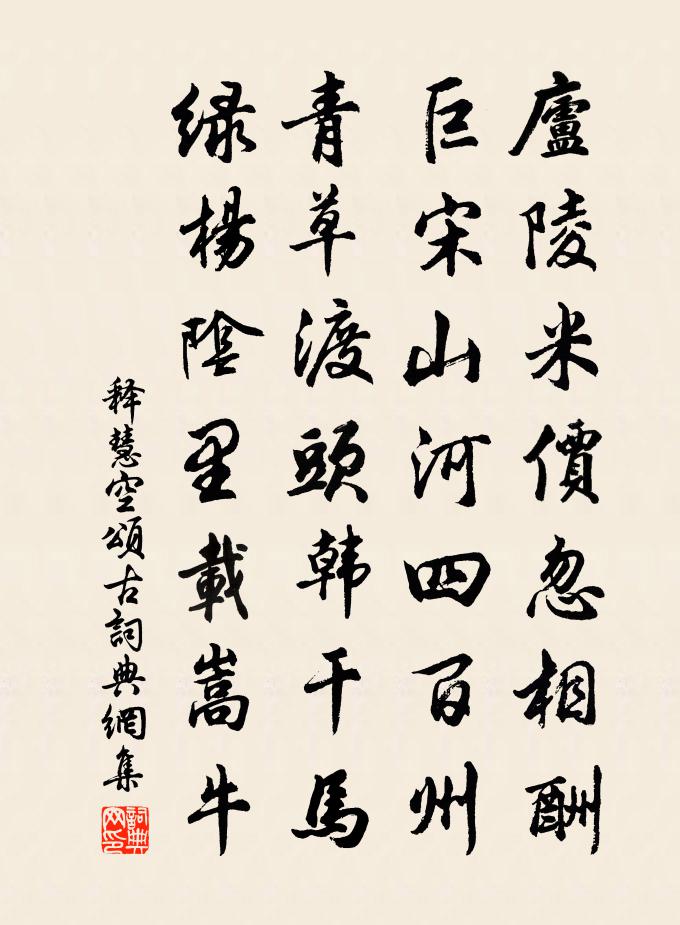 廬陵米價忽相酬
巨宋山河四百州
青草渡頭韩干馬
緑楊陰里載嵩牛
释慧空頌古詞典網集
詞典網印